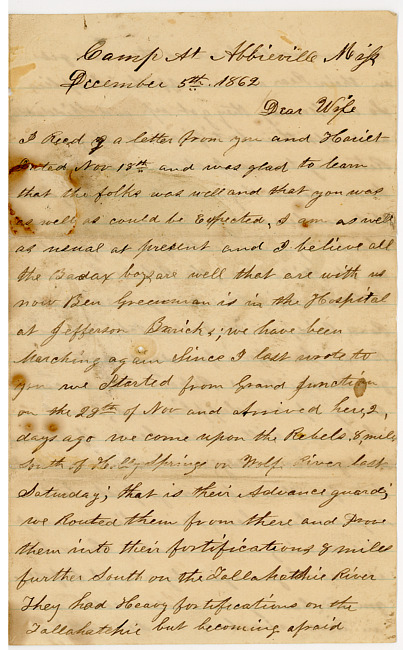 Camp At Abbieville Miss
December 5th. 1862
Dear Wife
I Recd a letter from you and Hariet
Dated Nov 13th and was glad to learn
that the folks was well and that you was
as well as could be Expected, I am as well
as usual at present and I believe all
the Badax boys are well that are with us
now Ben Greenman is in the Hospital
at Jefferson Baricks; we have been
Marching again Since I last wrote to
you we Started from Grand Junction
on the 28th of Nov and Arrived here, 2,
days ago we come upon the Rebels 8 miles
South of Holly Springs on Wolf River last
Saturday; that is their Advance guard;
we Routed them from there and Drove
them into their fortifications 8 miles
further South on the Tallahatchie River
They had Heavy fortifications on the
Tallahatchie but becoming afraid